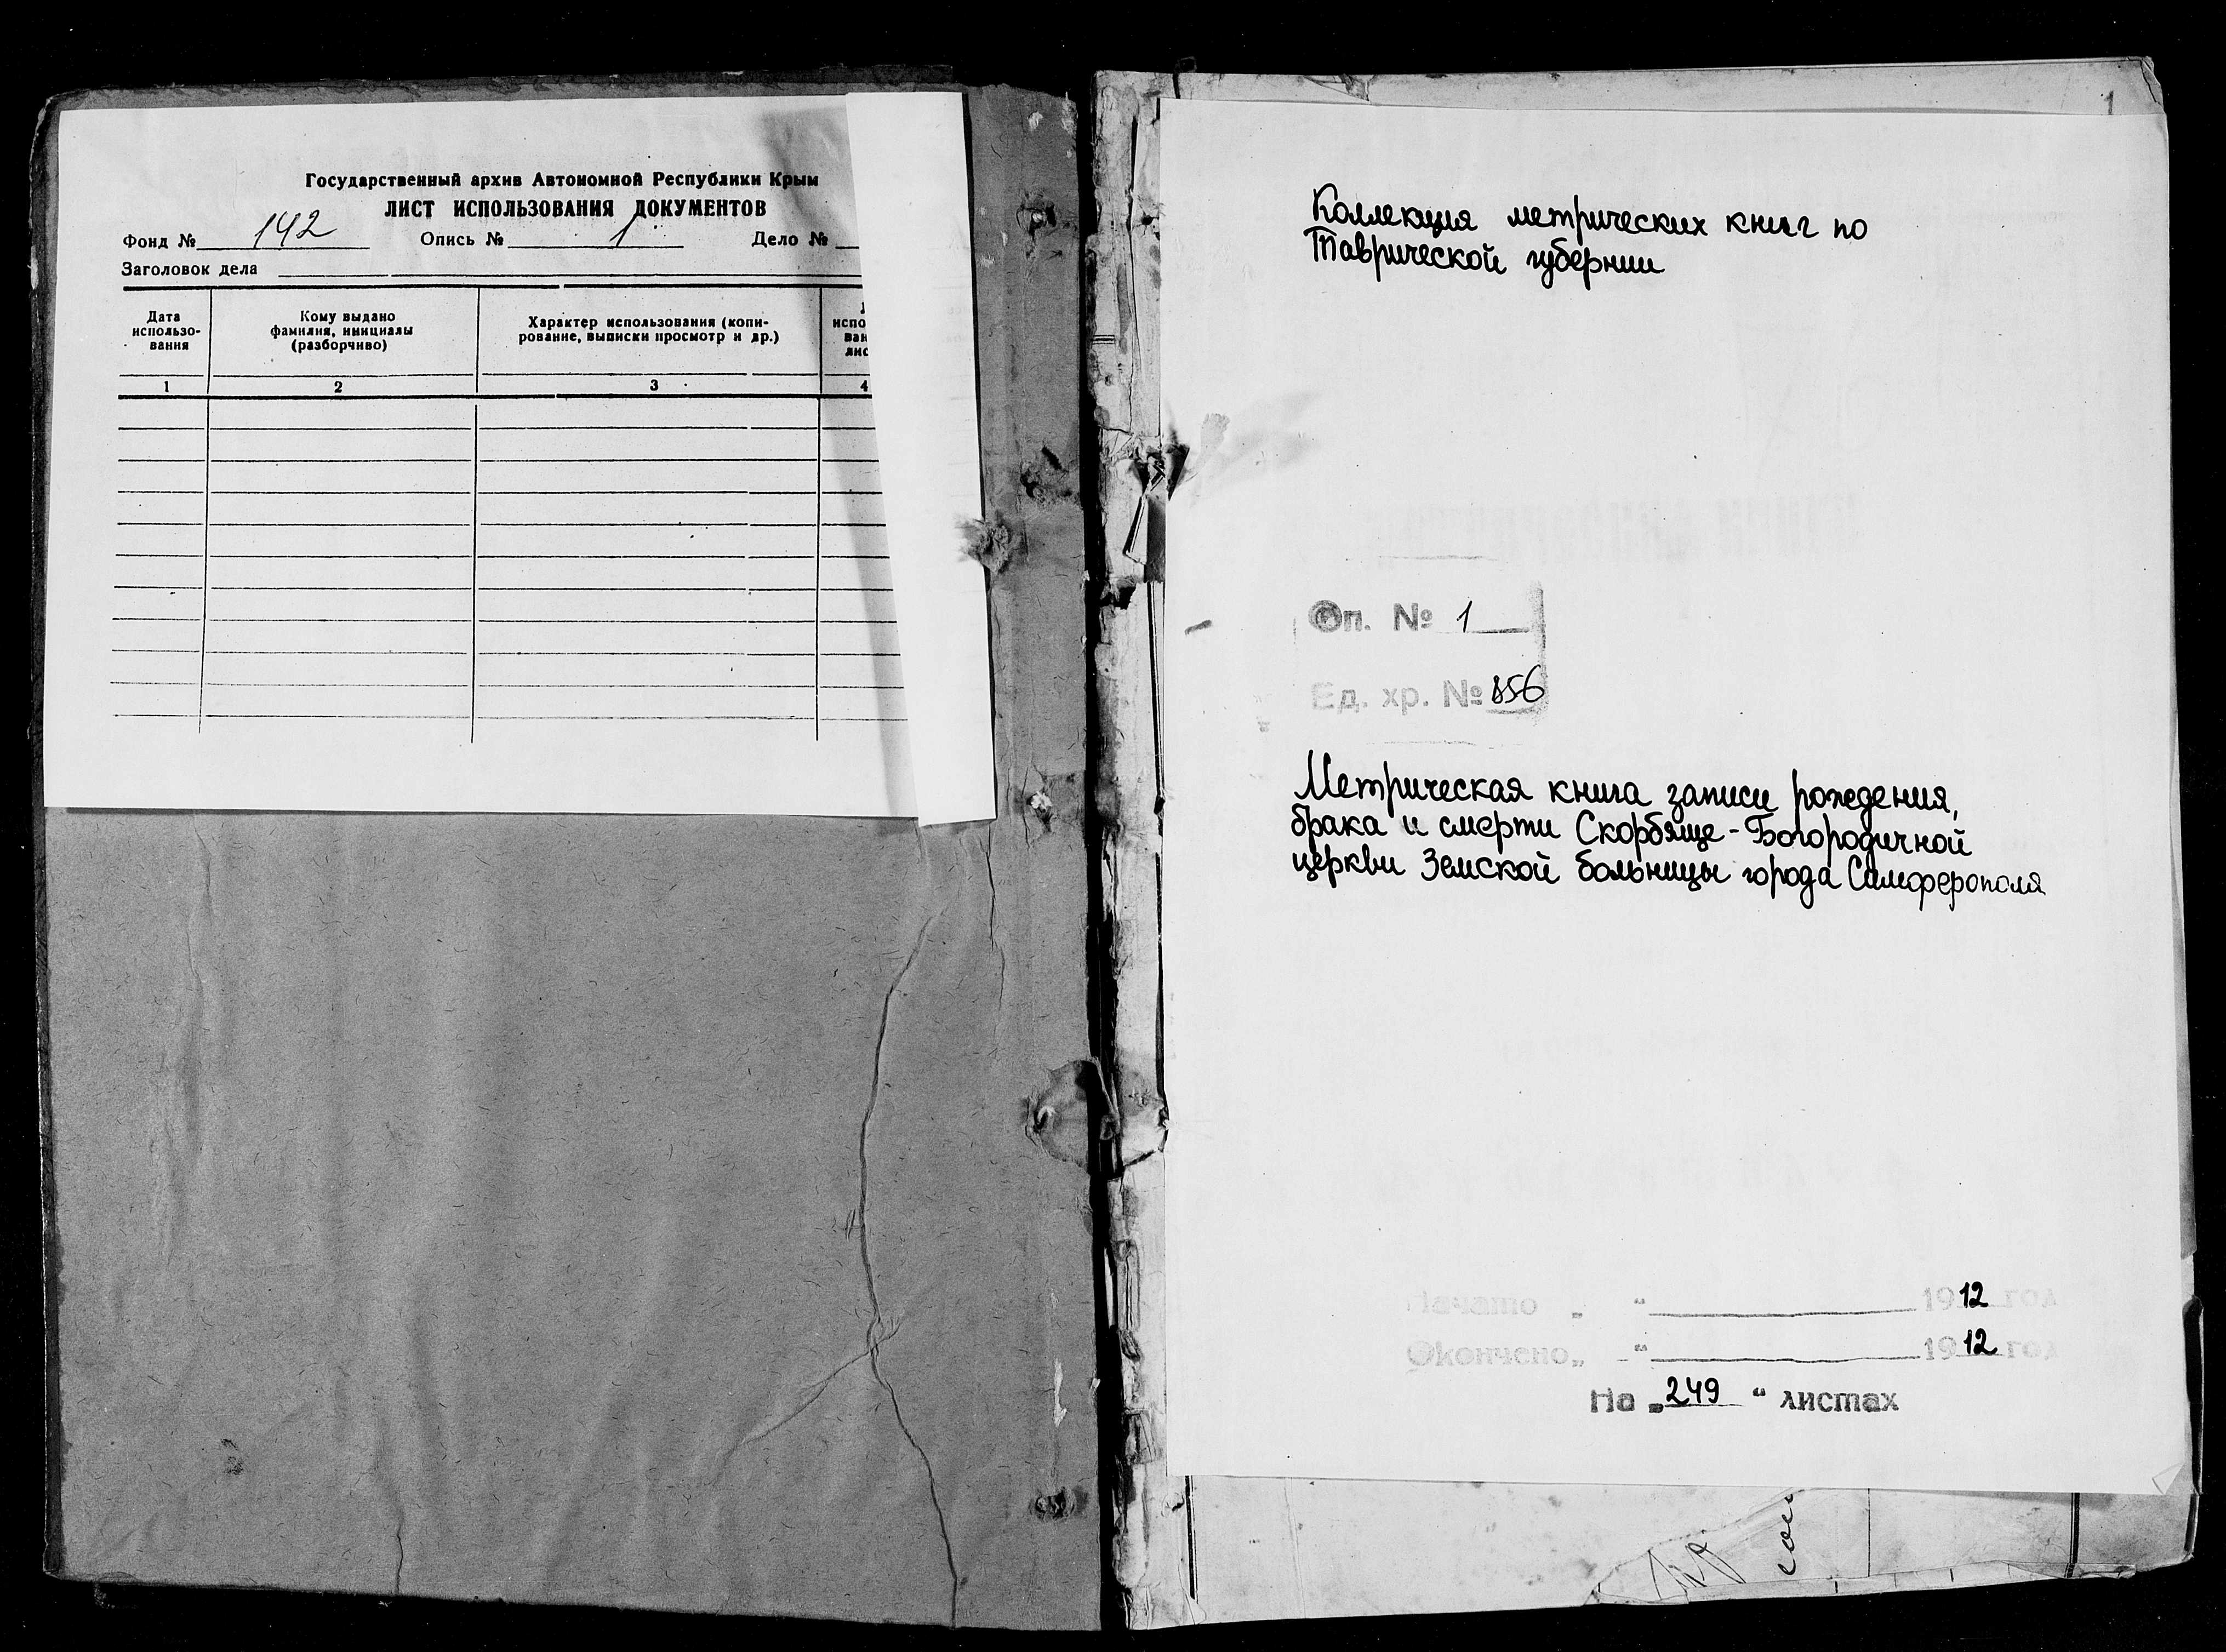 Государственный архив Автономной Республики Крым
ЛИСТ ИСПОЛЬЗОВАНИЯ ДОКУМЕНТОВ
Фонд № 142 Опись № 1 Дело №
Заголовок дела
Дата
использо-
вания
Кому выдано
фамилия, инициалы
(разборчиво)
Характер использования (копи-
рование, выписки просмотр и др.)
1
2
3
4
1
Коллекция метрических книг по
Таврической губернии
Оп. № 1
Ед. хр. № 856
Метрическая книга записи рождения,
брака и смерти Скорбяще-Богородичной
церкви Земской больницы города Симферополя
Начато „ “ 1912 год
Окончено „ “ 1912 год
На „249“ листах